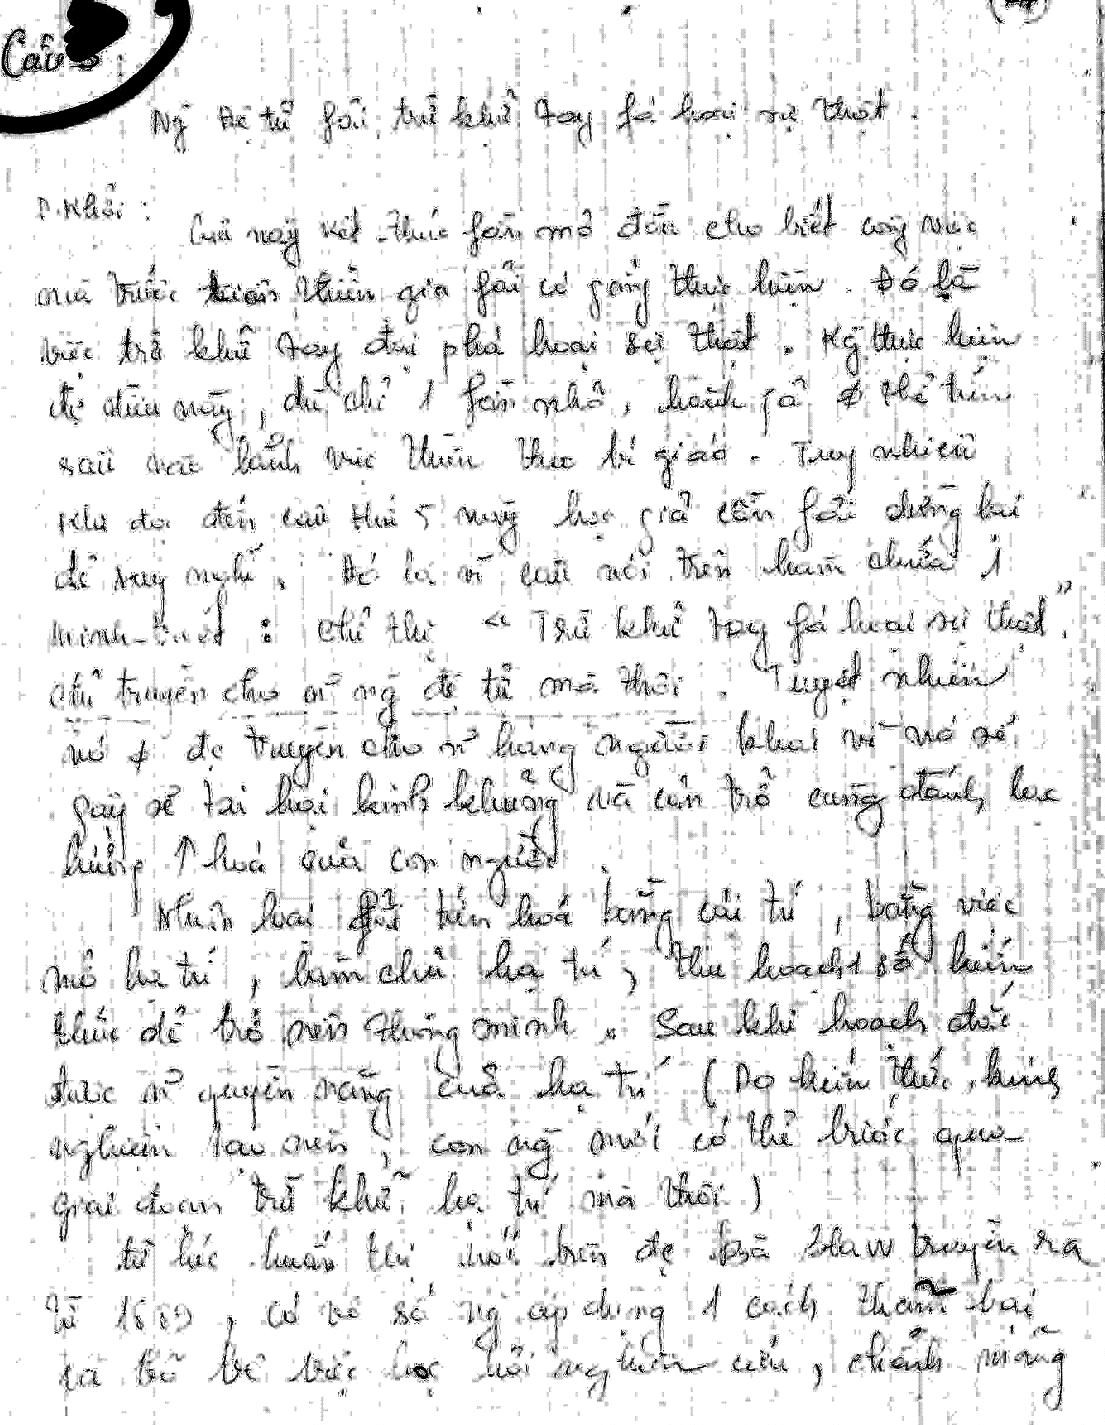 Câu 5 :
Ng đệ tử fải trừ khử tay fá hoại sự thật .
D.Khởi :
Câu này kết thúc fần mở đầu cho biết công việc
mà trước tiên thiền gia fải cố gắng thực hiện . Đó là
việc trừ khử tay đại phá hoại sự thật . Kg thực hiện
đc điều này , dù chỉ 1 fần nhỏ , hành giả ∅ thể tiến
sâu vào lãnh vực thiền theo bí giáo . Tuy nhiên
khi đọc đến câu thứ 5 này học giả cần fải dừng lại
để suy nghĩ . Đó là vì câu nói trên hàm chứa 1
minh-triết : chỉ thị “ Trừ khử tay fá hoại sự thật ”
chỉ truyền cho n~ ng đệ tử mà thôi . Tuyệt nhiên
nó ∅ đc truyền cho n~ hạng người khai vì nó sẽ
gây sẽ tai hại kinh khủng và cản trở cùng đánh lạc
hướng ↑ hoá của con người .
Nhân loại fải tiến hoá bằng cái trí , bằng việc
mở hạ trí , làm chủ hạ trí , thu hoạch 1 số kiến
thức để trở nên thông minh . Sau khi hoạch đắc
được n~ quyền năng của hạ trí ( Do kiến thức , kinh
nghiệm tạo nên , con ng mới có thể bước qua
giai đoạn trừ khử hạ trí mà thôi )
từ lúc huấn thị nói trên đc bà Blaw truyền ra
từ 1889 , có vô số ng áp dụng 1 cách thảm bại
là bỏ bê việc học hỏi nghiên cứu , chểnh mảng